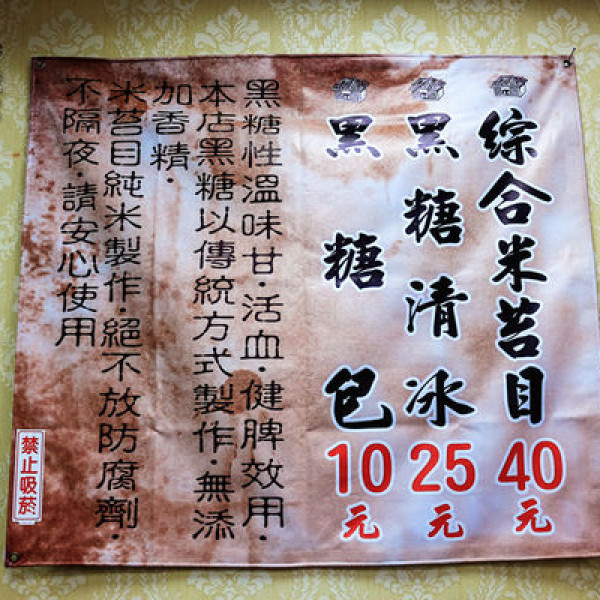 綜合米苔目40元
黑糖清冰25元
黑糖包10元
黑糖性溫味甘·活血·健脾效用·
本店黑糖以傳統方式製作·無添
加香精·
米苔目純米製作·絕不放防腐劑·
不隔夜·請安心使用
禁止吸菸